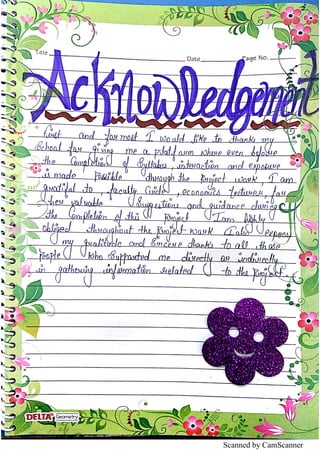 Title
Date
Page No.
Acknowledgement
First and formost I would like to thanks my
School for giving me a platform where even before
the Completion of Syllabus interaction and exposure
is made possible through the project work I am
gratiful to faculty economics lecturer for
her valuable Suggestions and guidance during
the Completion of this project I am highly
obliged throughout the Project work I also express
my gratitude and Sincere thanks to all those
people who Supported me directly or indirectly
in gathering information related to the Project
DELTA Geometry
Scanned by CamScanner